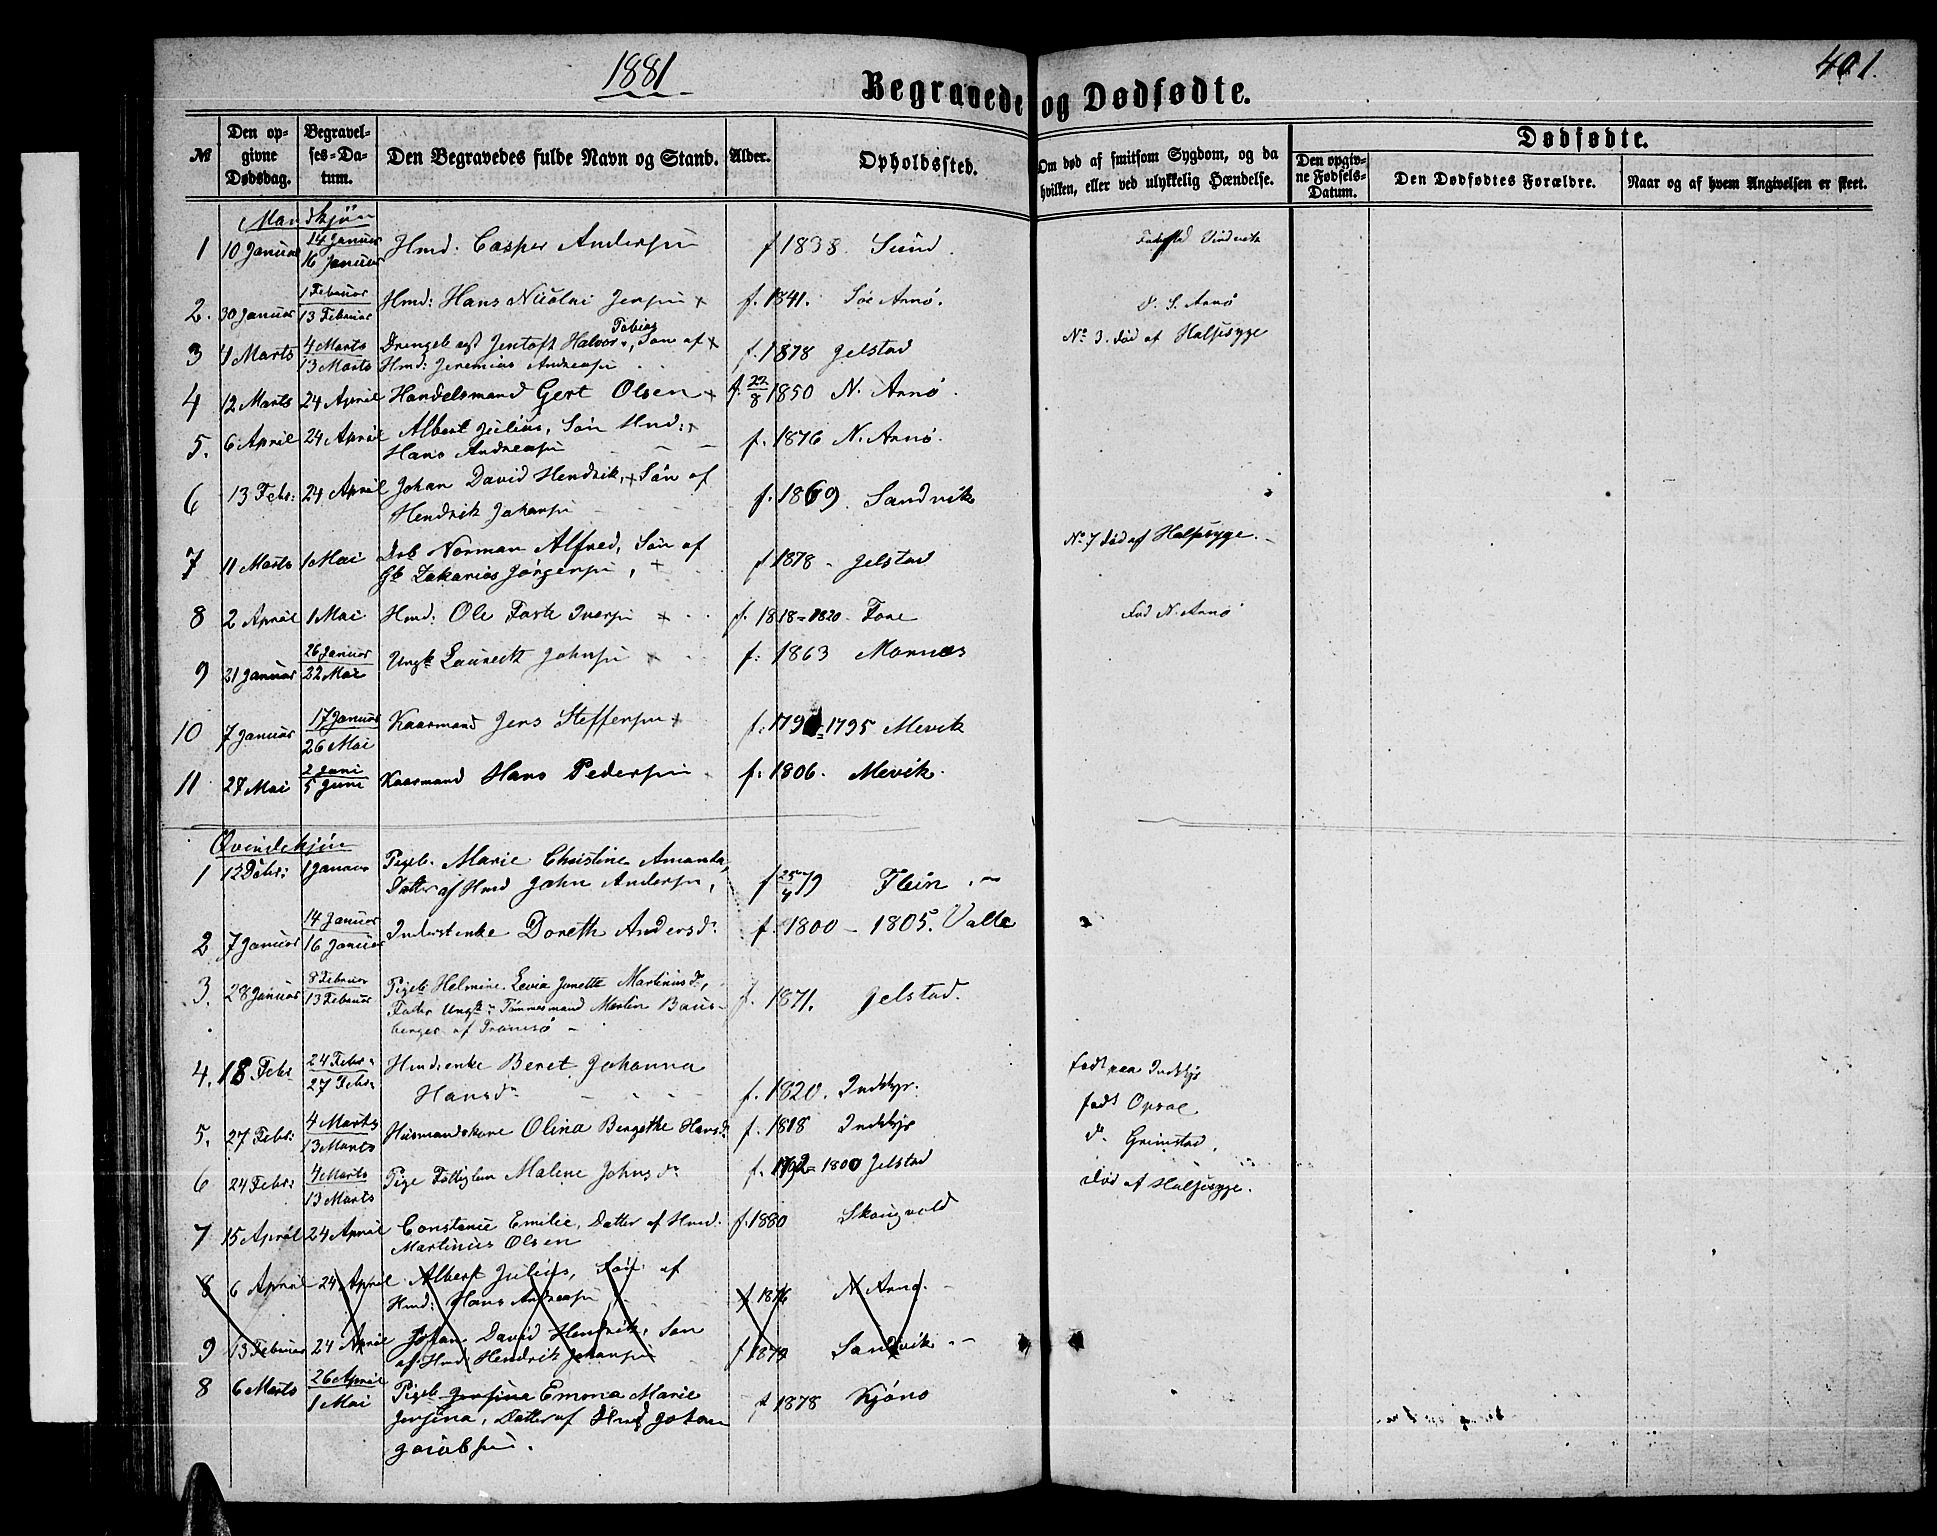 1881
401.
Begravede og Dødfødte.
№
Den opgivne Dødsdag.
Begravelses-Datum.
Den Begravedes fulde Navn og Stand.
Alder.
Opholdssted.
Om død af smitsom Sygdom, og da hvilken, eller ved ulykkelig Hændelse.
Dødfødte.
Den opgivne Fødsels-Datum.
Den Dødfødtes Forældre.
Naar og af hvem Angivelsen er skeet.
Mandkjön
1 10 Januar 14 Januar 16 Januar Hmd: Casper Andersen f 1838. Sund.
2. 30 Januar 1 Februar 13 Februar Hmd: Hans Nicolai Jensen + f. 1841. Sör Arnö. S. Arnö
3 4 Marts 4 Marts 13 Marts Drengeb. Jentoft Halvor Tobias, Sön af +
Hmd: Jeremias Andreasen f. 1878 Gelstad No 3. död af Halssyge
4 12 Marts 24 April Handelsmand Gert Olsen + f. 22/8 1850 N. Arnö.
5. 6 April 24 April Albert Julius, Sön Hmd: +
Hans Andreasen f. 1876 N. Arnö.
6 13 Febr: 24 April Johan David Hendrik, + Sön af
Hendrik Johansen f. 1869. Sandvik
7 11 Marts 1 Mai Drb Norman Alfred, Sön af
Gb Zakarias Jörgensen, + f 1878 - Gelstad No 7 död af Halssyge. -
8 2 April 1 Mai Hmd: Ole Fask Iversen + f. 1818 = 1820 - Fore Fød N. Arnö
9 21 Januar 26 Januar 22 Mai Ungk Lauredts Johnsen + f: 1863 Mornes
10 7 Januar 17 Januar 26 Mai Kaarmand Jens Steffensen + f: 179 = 1795 Mevik
11 27 Mai 2 Juni 5 Juni Kaarmand Hans Pedersen f: 1806. Mevik.
Qvindekjön
1 12 Dcbr: 1 Januar Pigeb. Marie Christine Amanda,
Datter af Hmd John Andersen, f 25/4 79 Flein. -
2 7 Januar 14 Januar 16 Januar Inderstenke Doreth Andersdr f. 1800 - 1805. Valle
3. 28 Januar 8 Februar 13 Februar Pigeb. Helmine Levia Janette Martinusdr,
Fader Ungk: Tömmesmand Martin Baus-
berger af Tromsö - f. 1871. Gelstad.
4. 18 Febr 24 Febr: 27 Febr: Hmdsenke Beret Johanna
Hansdr f. 1820. Inddyr. født paa Inddyr
5. 27 Febr: 4 Marts 13 Marts Husmandskone Olina Bergethe Hansdr f. 1818 Inddyr født Opsal
6 24 Febr: 4 Marts 13 Marts Pige Fattiglem Malene Johnsdr f. 1792 = 1800 Gelstad do Grimstad.
7 15 April 24 April Constance Emilie, Datter af Hmd:
Martinus Olsen f. 1880 Skougvold död af Halssyge.
8 6 April 24 April Albert Julius, Sön af
Hmd: Hans Andreasen f 1876 N Arnö. -
9 13 Februar 24 April Johan David Hendrik, Sön
af Hmd: Hendrik Johansen f 1879 Sandvik. -
8 6 Marts 26 April 1 Mai Pigeb Jensine Emma Marie
Jensine, Datter af Hmd Johan
Jacobsen. f 1878 Kjöno